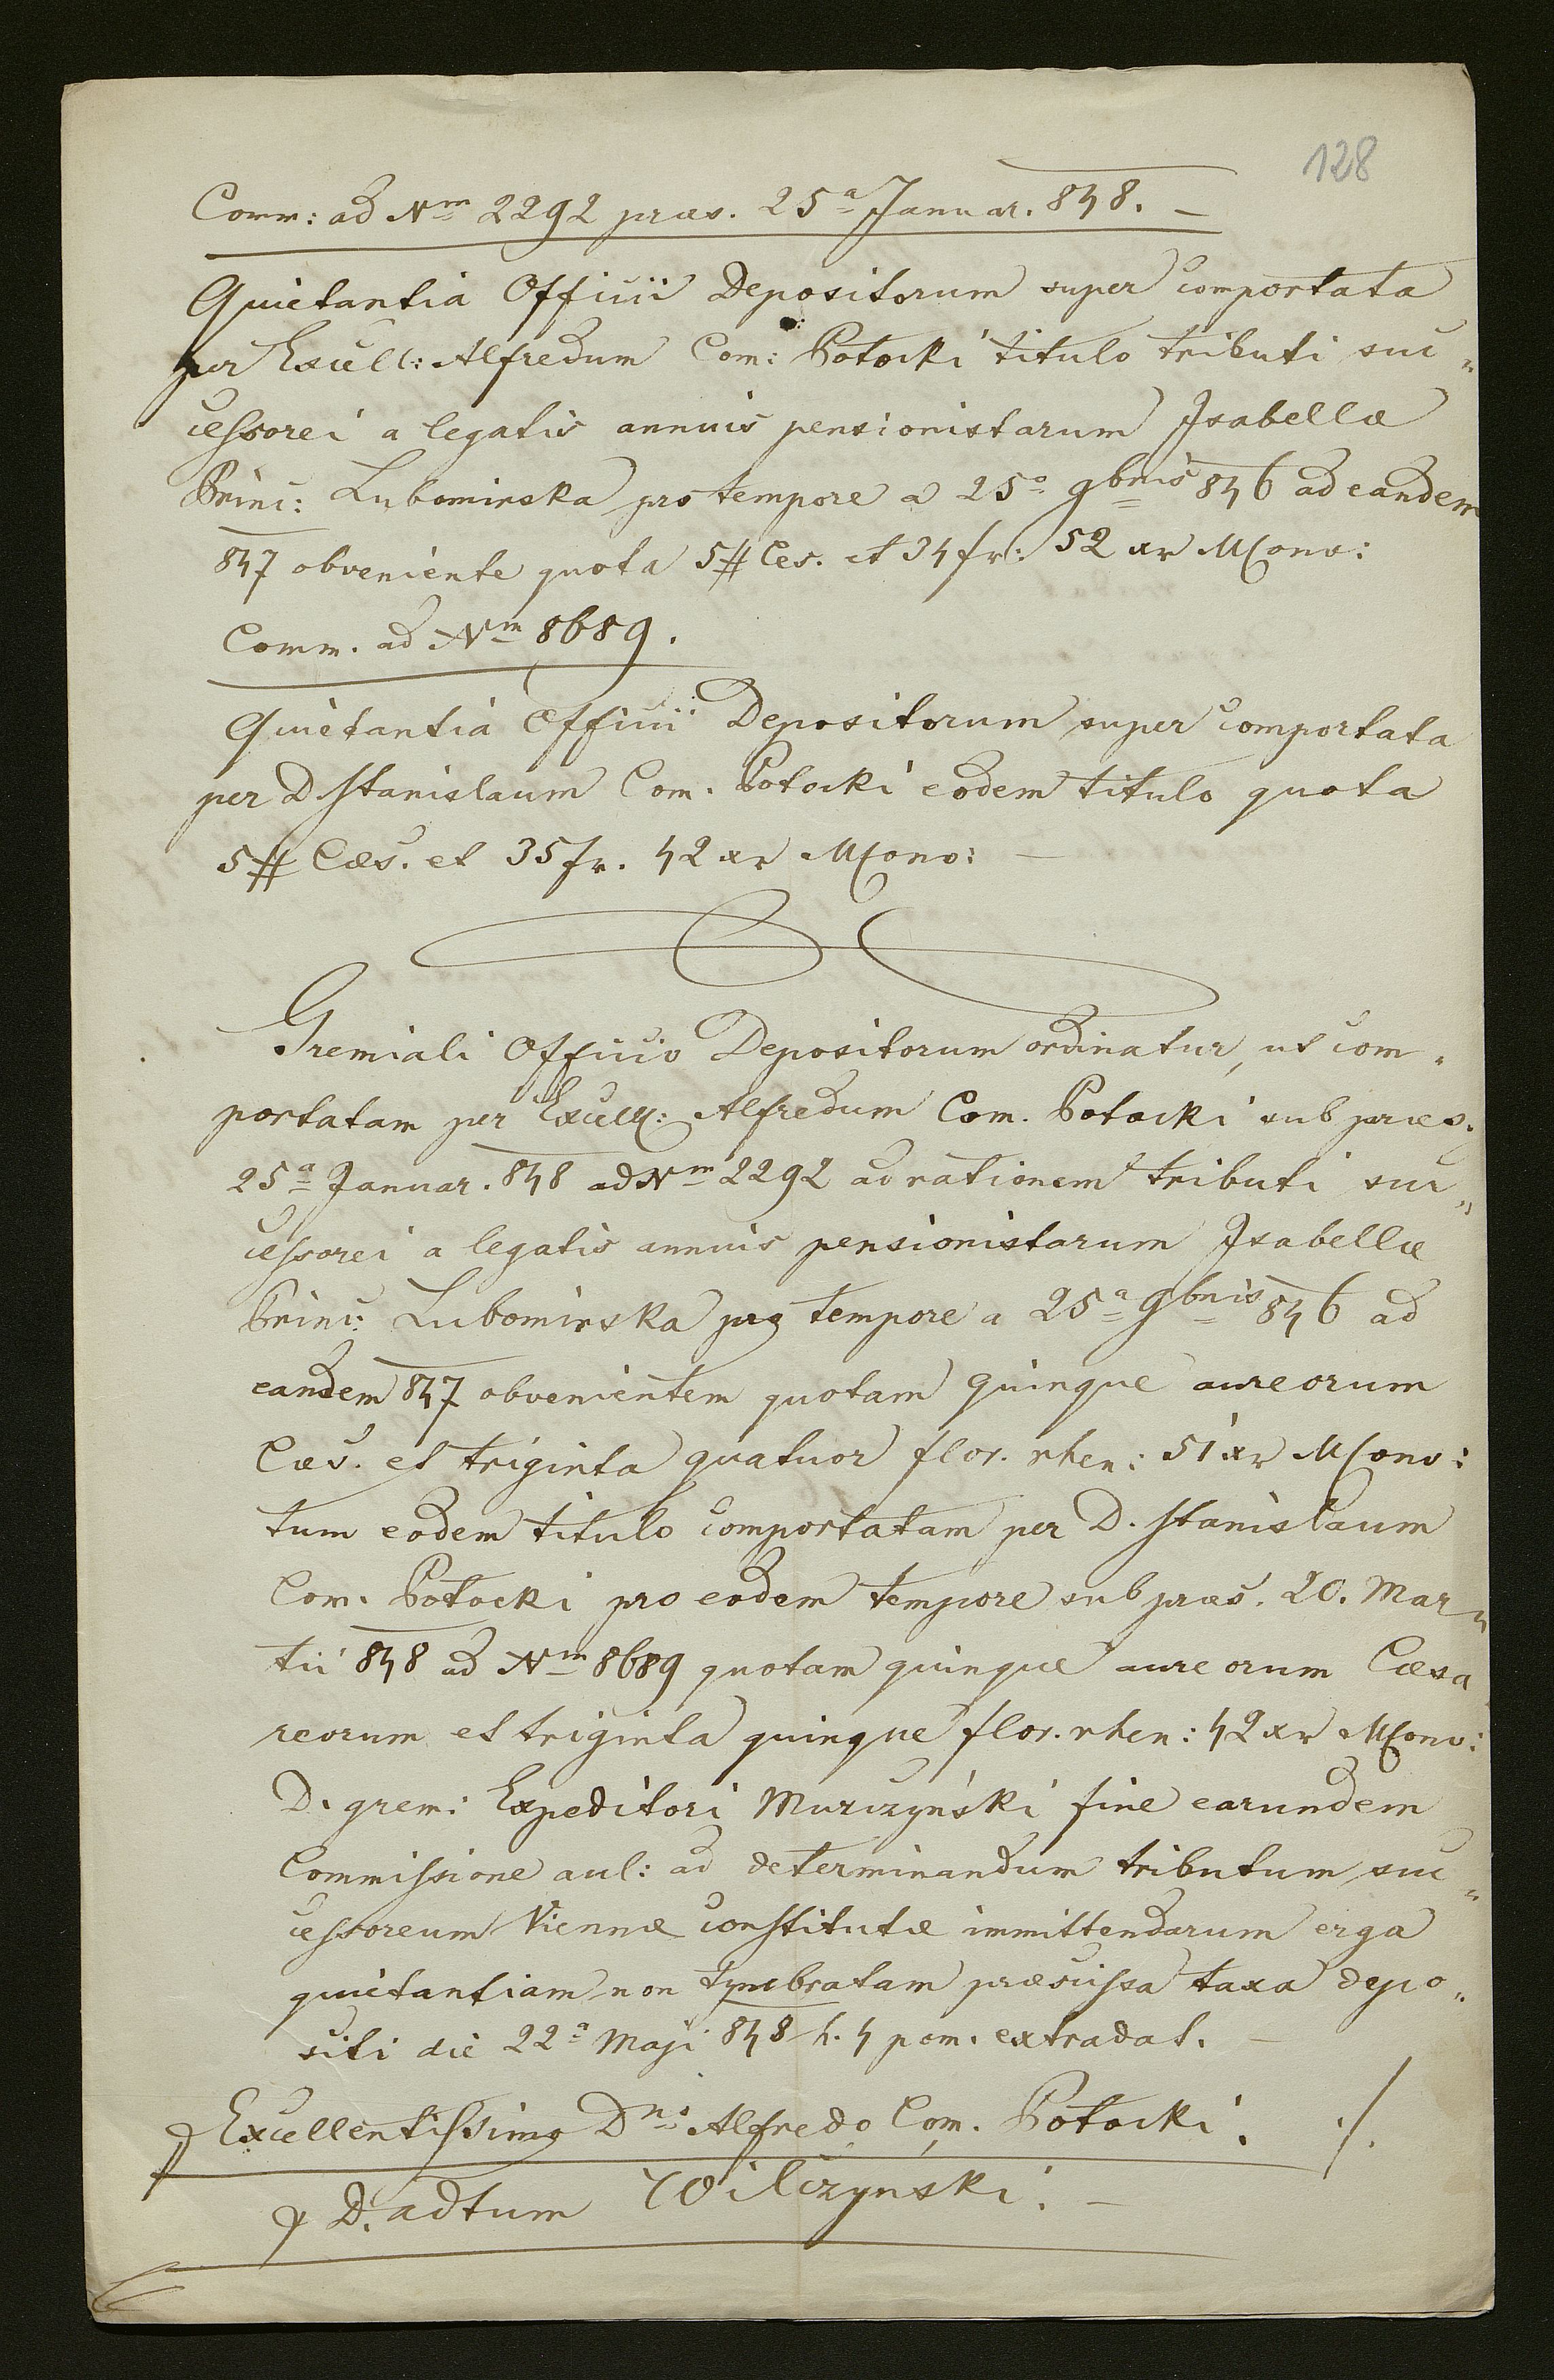 128
Comm: ad Nm 2292 præs. 25a Januar. 848. –
Quietantia Officii Depositorum super comportata
per Excell: Alfredum Com: Potocki titulo tributi suc„
cessorei a legatis annuis pensionistarum Isabellæ
Princ: Lubomirska pro tempore a 25a 9bris 846 ad eandem
847 obveniente quota 5# Ces. et 34 fr: 52 xr MConv:
Comm. ad Nm 8689.
Quietantia Officii Depositorum super comportata
per D Stanislaum Com. Potocki eodem titulo quota
5# Cæs. et 35 fr. 42 xr MConv: –
Gremiali Officio Depositorum ordinatur, ut com„
portatam per Excell: Alfredum Com. Potocki sub præs.
25a Januar. 848 ad Nm 2292 ad rationem tributi suc„
cessorei a legatis annuis pensionistarum Isabellæ
Princ: Lubomirska pro tempore a 25a 9bris 846 ad
eandem 847 obvenientem quotam quinque aureorum
Cæs. et triginta quatuor flor. rhen: 51 xr MConv:
tum eodem titulo comportatam per D. Stanislaum
Com. Potocki pro eodem tempore sub præs. 20. Mar„
tii 848 ad Nm 8689 quotam quinque aureorum Cæsa
reorum et triginta quinque flor. rhen: 42 xr MConv:
D. grem: Expeditori Murczyński fine earundem
Commissione aul: ad determinandum tributum suc„
cessoreum Viennæ constitutæ immittendarum erga
quietantiam non tymbratam præscissa taxa depo„
siti die 22a Maji 848 h. 4 pom. extradat. –
Excellentissimo Dno Alfredo Com. Potocki. ./.
D. adtum Wilczyński. –